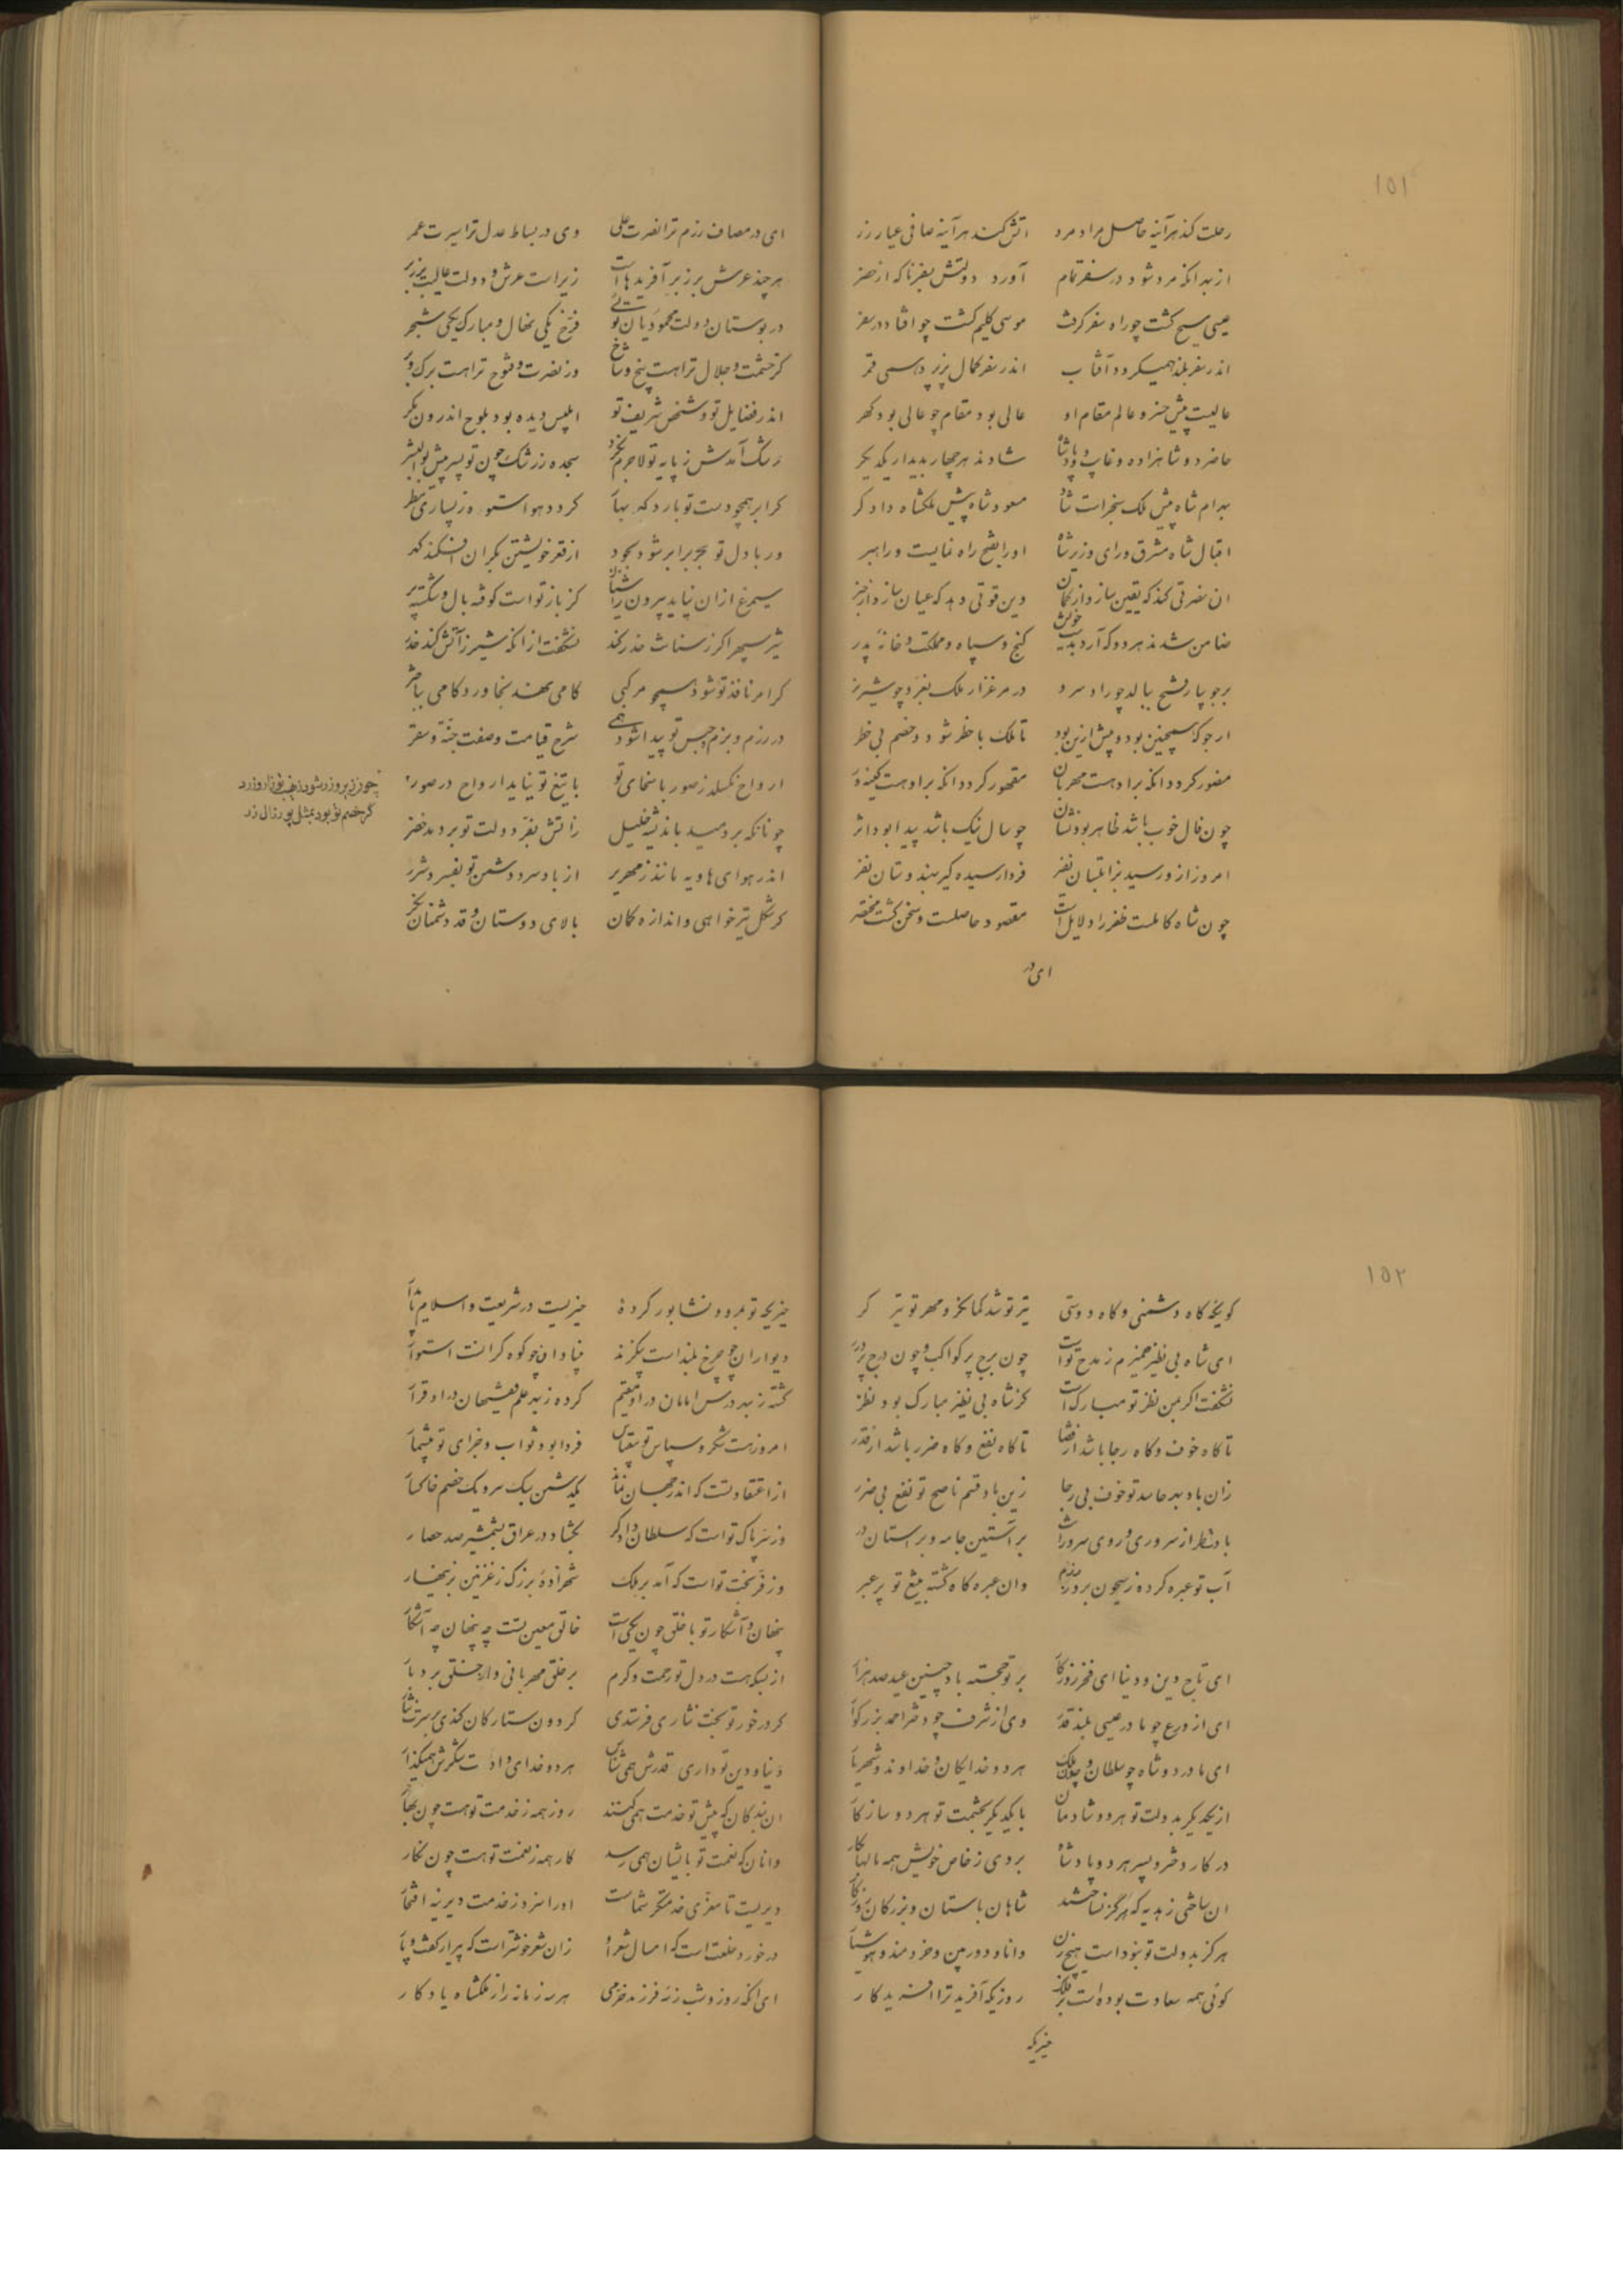 ۱۵۱
رحلت کند هرآینه حاصل مراد مرد آتش کند هرآینه صافی عیار زر
از بعد آنکه مرد شود در سفر تمام آورد دولتش بسفر تا که از حضر
عیسی مسیح گشت چو راه سفر گرفت موسی کلیم گشت چو افتاد در سفر
اندر سفر بلند همی‌گردد آفتاب اندر سفر کمال پذیرد همی قمر
عالیست پیش خسرو عالم مقام او عالی بود مقام چو عالی بود گهر
حاضر دو شاهزاده و غایب دو پادشاه شادند هر چهار بدیدار یکدگر
بهرام شاه پیش ملک سنجرست شاد مسعود شاه پیش ملکشاه دادگر
اقبال شاه مشرق و رای وزیر شاه او را بفتح راه نمایست و راهبر
آن نصرتی کند که یقین سازد از گمان وین قوتی دهد که عیان سازد از خبر
ضامن شدند هر دو که آرد بدست خویش گنج و سپاه و مملکت و خانهٔ پدر
بر جویبار فتح ببالد چو راد سرو در مرغزار ملک بغرد چو شیر نر
ارجو که همچنین بود و بیش ازین بود تا ملک با خطر شود و خصم بی خطر
منصور گردد آنکه براوهست مهربان مقهور گردد آنکه براوهست کینه‌ور
چون فال خوب باشد ظاهر بود نشان چو سال نیک باشد پیدا بود اثر
امروز از و رسید بزابلستان نفر فردا رسیده گیر بهندوستان نفر
چون شاه کاملست ظفر را دلایل است مقصود حاصلست و سخن گشت مختصر
ای در
ای در مصاف رزم ترا نصرت علی وی در بساط عدل ترا سیرت عمر
هر چند عرش برزبر آفریدهاست زیراست عرش و دولت عالیت برزبر
در بوستان دولت محمودیان توئی فرخ یکی نهال و مبارک یکی شجر
کز حشمت و جلال تراهست بیخ و شاخ وز نصرت و فتوح تراهست برگ و بر
اندر فضایل تو و شخص شریف تو ابلیس دیده بود بلوح اندرون مگر
رشک آمدش ز پایه تو لاجرم نکرد سجده ز رشک چون تو پسر پیش بوالبشر
گر ابر همچو دست تو بارد گهر بها گردد هوا ستوه ز بسیاری مطر
ور با دل تو بحر برابر شود بجود از قعر خویشتن بکران افکند گهر
سیمرغ ازان نیاید بیرون ز آشیان کز باز تو است کوفته بال و شکسته پر
شیر سپهر اگر ز سنانت حذر کند نشگفت از آنکه شیر ز آتش کند حذر
گر امر نافذ تو شود همچو مرکبی گامی نهد بخاور و گامی بباختر
در رزم و بزم و حبس تو پیدا شود همی شرح قیامت و صفت جنة و سقر
ارواح نگسلد ز صور با سخای تو با تیغ تو نیاید ارواح در صور
چونانکه بر دمید باندیشه خلیل ز آتش بفر دولت تو بر دمد خضر
اندر هوای هاویه مانند زمهریر از باد سرد دشمن تو بفسرد شرر
گر شکل تیر خواهی و اندازه کمان بالای دوستان و قد دشمنان نگر
۱۵۲
گوئیکه گاه دشمنی و گاه دوستی تیر تو شد کمانگر و مهر تو تیر گر
ای شاه بی نظیر ضمیرم ز مدح تواست چون برج پر کواکب و چون درج پر درر
نشگفت اگر بمن نظر تو مبارکست کز شاه بی نظیر مبارک بود نظر
تا گاه خوف و گاه رجا باشد از قضا تا گاه نفع و گاه ضرر باشد از قدر
زان باد بهر حاسد تو خوف بی رجا زین باد قسم ناصح تو نفع بی ضرر
بادت طراز سروری و روی سرورانت بر آستین جامه و بر آستان در
آب تو عبره کرده ز جیحون بروز رزم وان عبره گاه گشته بتیغ تو پر عبر
ای تاج دین و دنیا ای فخر روزگار بر تو خجسته باد چنین عید صد هزار
ای از ورع چو مادر عیسی بلند قدر وی از شرف چو دختر احمد بزرگوار
ای مادر دو شاه چو سلطان و چون ملک هر دو خدایگان و خداوند و شهریار
از یکدیگر بدولت تو هر دو شادمان با یکدیگر بحشمت تو هر دو سازگار
در کار دختر و پسر هر دو پادشاه بردی ز خاص خویش همه مالها بکار
آن ساختی ز هدیه که هرگز نساختند شاهان باستان و بزرگان روزگار
هرگز بدولت تو نبوداست هیچ زن دانا و دوربین و خردمند و هوشیار
گوئی همه سعادت بوده‌است بر فلک روزیکه آفرید ترا آفریدگار
خیریکه
خیریکه تو بمرو و نشابور کردهٔ خیریست در شریعت و اسلام پایدار
دیوار آن چو چرخ بلند است بیگزند بنیاد آن چو کوه گرانست استوار
گشته ز بهر درس امامان در او مقیم کرده ز بهر علم فقیهان در او قرار
امروز هست شکر و سپاس تو بیقیاس فردا بود ثواب و جزای تو بیشمار
از اعتقاد تست که اندر جهان نماند یکدشمن سبک سر و یک خصم خاکسار
وز سر پاک تواست که سلطان دادگر بگشاد در عراق بشمشیر صد حصار
وز فر بخت تواست که آمد بر ملک شهزادهٔ بزرگ ز غزنین بزینهار
پنهان و آشکار تو با خلق چون یکی است خالق معین تست چه پنهان چه آشکار
از بسکه هست در دل تو رحمت و کرم بر خلق مهربانی و از خلق بردبار
گر درخور تو بخت نثاری فرستدی گردون ستارگان کندی بر سرت نثار
دنیا و دین تو داری قدرش همی شناس هر دو خدای داد ت شکرش همیگذار
آن بندگان که پیش تو خدمت همی کنند روز همه ز خدمت تو هست چون بهار
وانان که نعمت تو بایشان همی رسد کار همه ز نعمت تو هست چون نگار
دیریست تا معزی خدمتگر شماست او را سزد ز خدمت دیرینه افتخار
درخورد خلعت است که امسال شعر او زان شعر خوشتر است که پیرار گفت و پار
ای آنکه روز و شب ز سه فرزند خرمی هر سه زمانه را ز ملکشاه یادگار